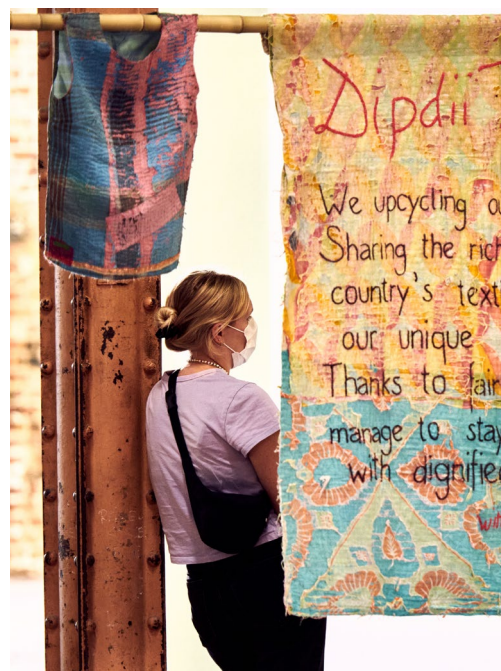 Dipdii T
We upcycling ou
Sharing the rich
country's text
our unique
Thanks to fair
manage to stay
with dignifie
wit